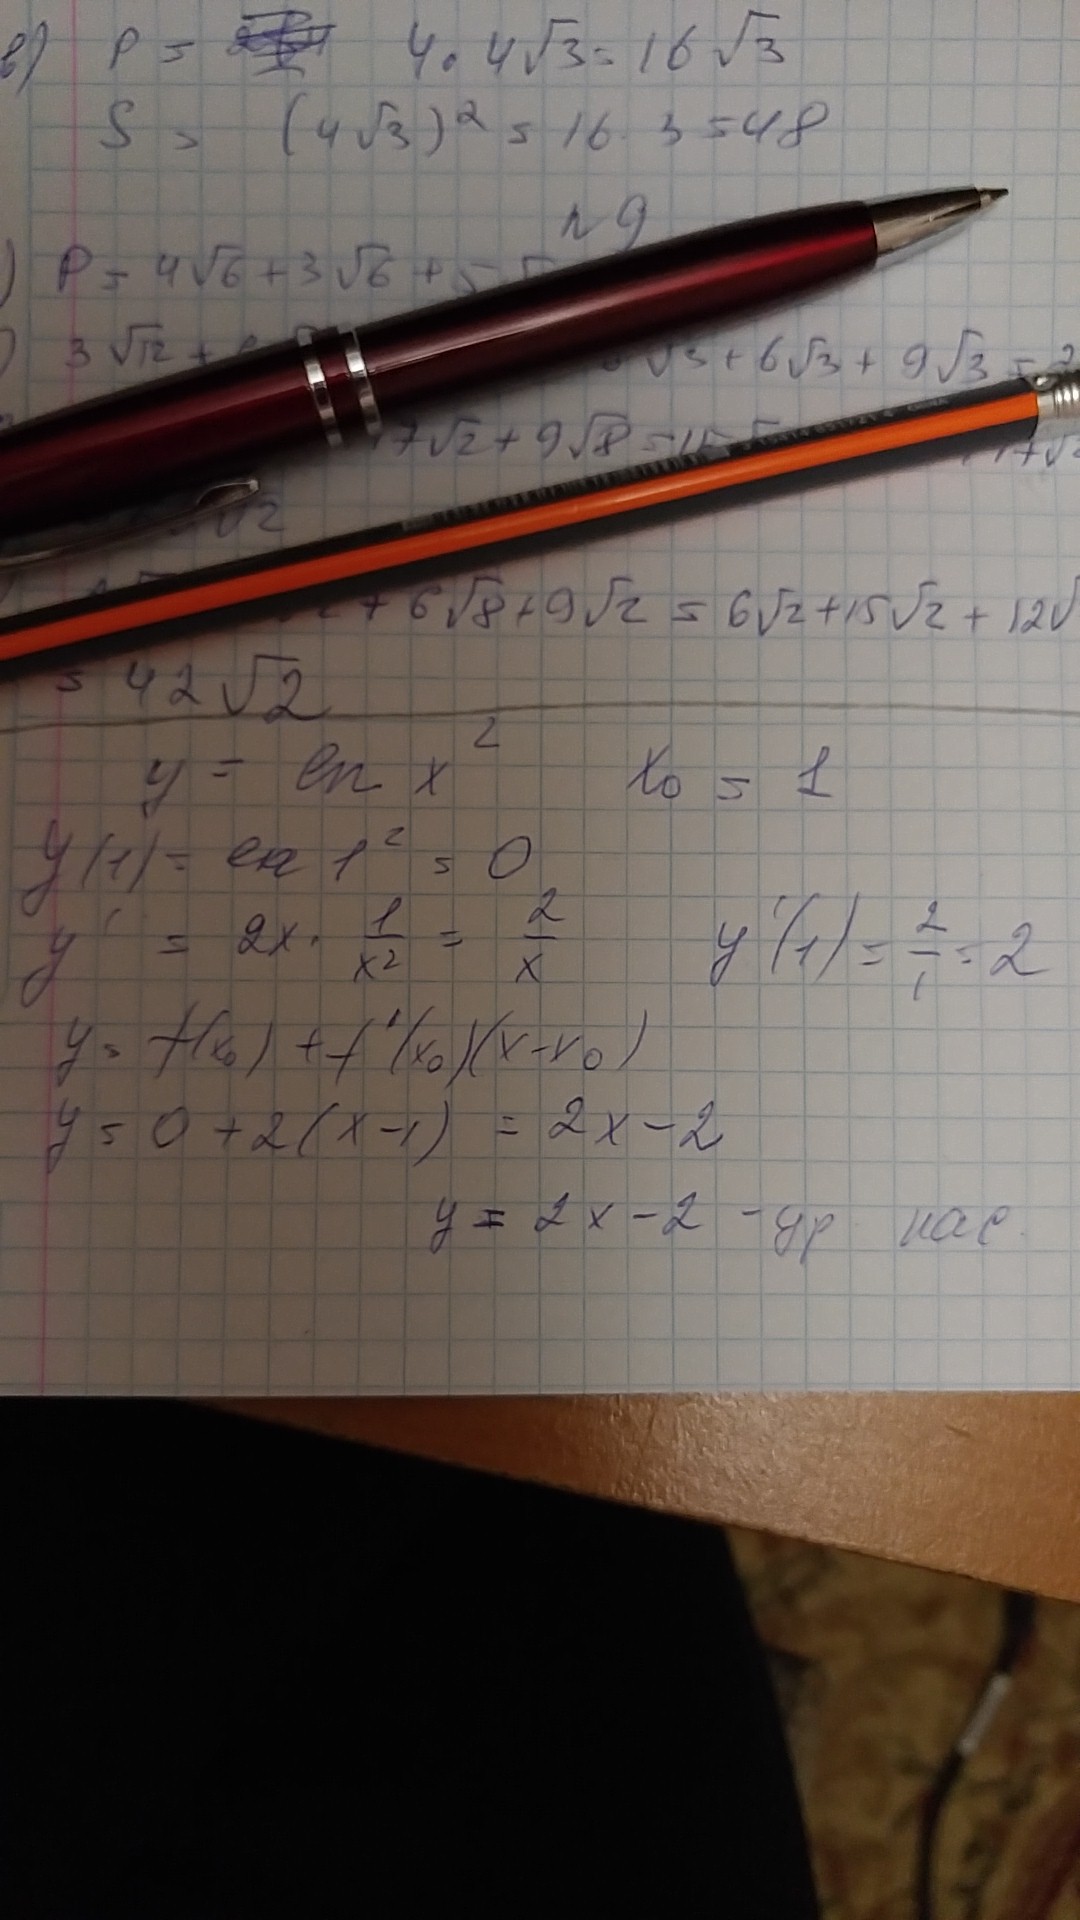 в) P = 4 · 4√3 = 16√3
S = (4√3)² = 16 · 3 = 48
n 9
) P = 4√6 + 3√6 + 5
) 3√12 + √3 + 6√3 + 9√3 =
17√2 + 9√8 =
√2
+ 6√8 + 9√2 = 6√2 + 15√2 + 12√
= 42√2
y = ln x² x₀ = 1
y(1) = ln 1² = 0
y' = 2x · 1/x² = 2/x y'(1) = 2/1 = 2
y = f(x₀) + f'(x₀)(x - x₀)
y = 0 + 2(x - 1) = 2x - 2
y = 2x - 2 - ур кас.